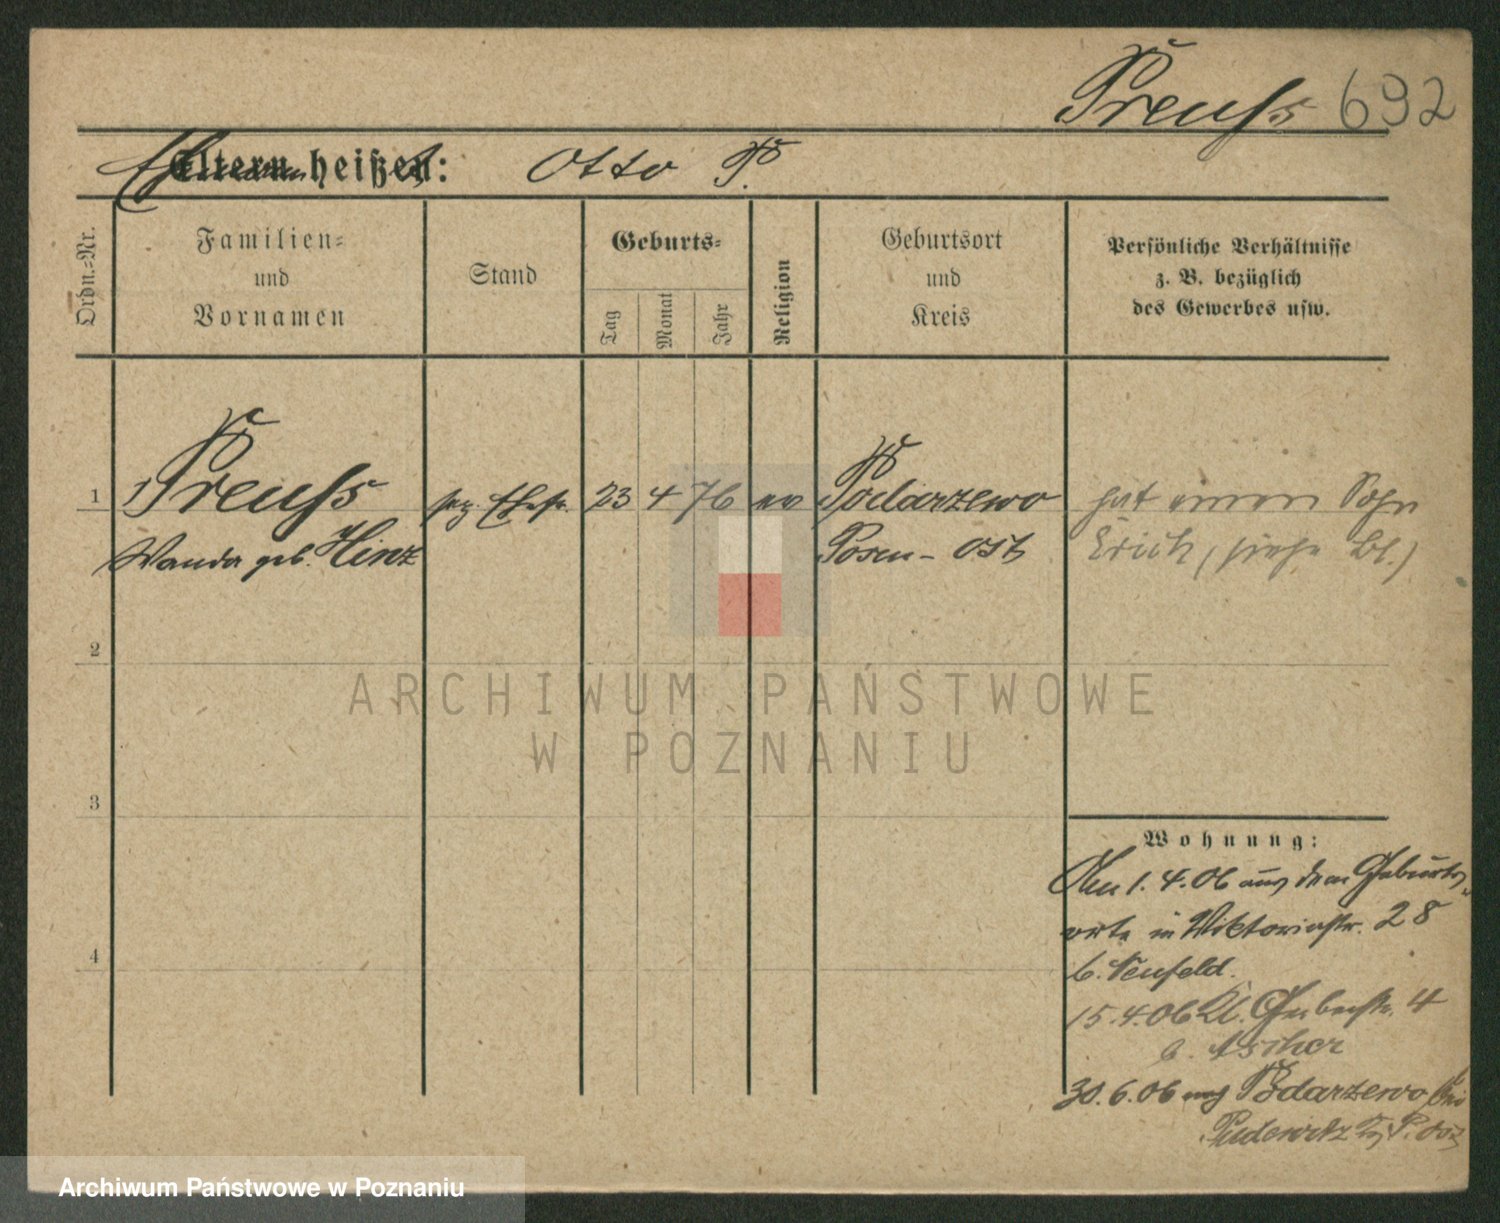 Preuss 692
Eltern heißen: Otto P.
Ordn.-Nr.
Familien-
und
Vornamen
Stand
Geburts-
Tag
Monat
Jahr
Religion
Geburtsort
und
Kreis
Persönliche Verhältnisse
z. B. bezüglich
des Gewerbes usw.
1 Preuss 23 4 76 ev Podarzewo hat einen Sohn
Wanda geb. Hinz Posen-Ost Erich, (siehe Bl.)
2
ARCHIWUM PAŃSTWOWE
W POZNANIU
3
Wohnung:
1. 4. 06 aus dem Geburts-
orte in Viktoriastr. 28
b. Neufeld.
4
15. 4. 06 Kl. Gerberstr. 4
b. Ascher
30. 6. 06 nach Podarzewo bei
Pudewitz
Archiwum Państwowe w Poznaniu